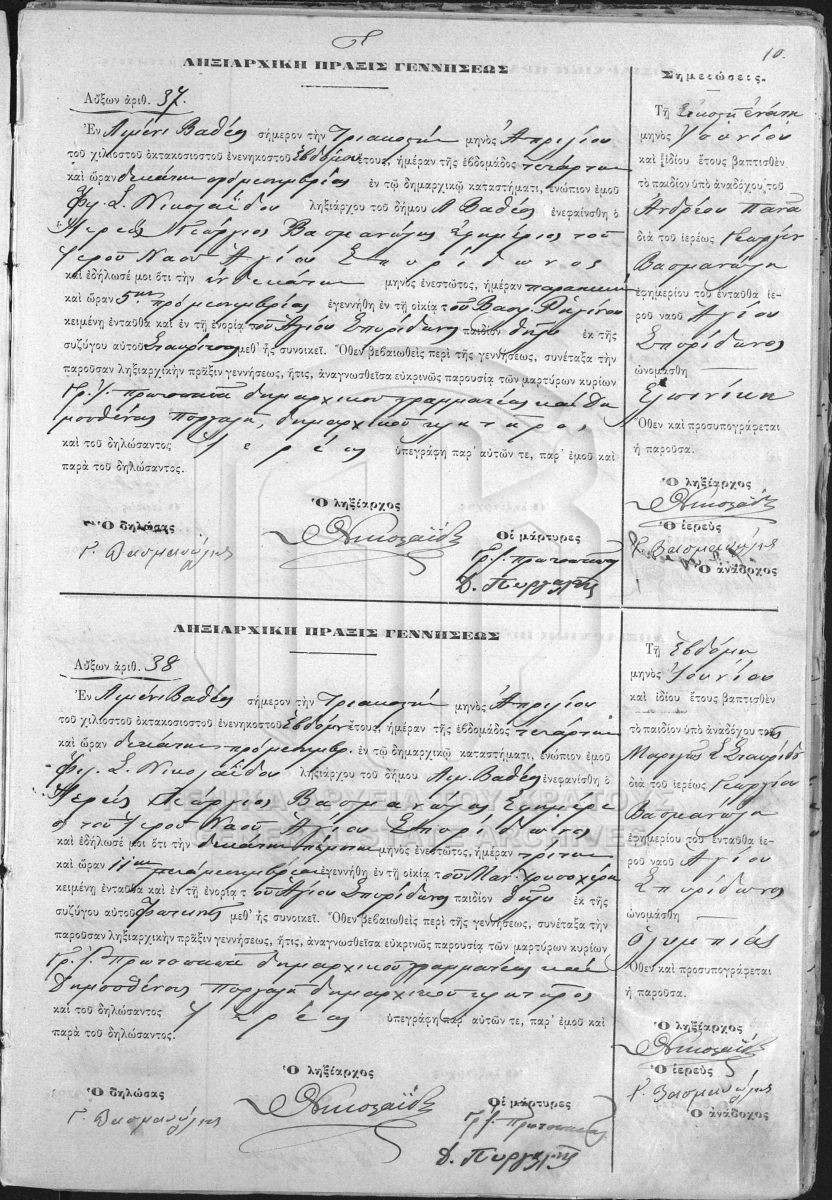 10.
ΛΗΞΙΑΡΧΙΚΗ ΠΡΑΞΙΣ ΓΕΝΝΗΣΕΩΣ
Αὔξων ἀριθ. 37
Ἐν Λιμένι Βαθέος σήμερον τὴν Τριακοστήν μηνὸς Ἀπριλίου
τοῦ χιλιοστοῦ ὀκτακοσιοστοῦ ἐνενηκοστοῦ Ἑβδόμου ἔτους, ἡμέραν τῆς ἑβδομάδος τετάρτην
καὶ ὥραν δεκάτην προμεσημβρίας ἐν τῷ δημαρχικῷ καταστήματι, ἐνώπιον ἐμοῦ
Νικολαΐδου ληξιάρχου τοῦ δήμου Λ. Βαθέος ἐνεφανίσθη ὁ
Ἱερεὺς Γεώργιος Βασμανώλης Ἐφημέριος τοῦ
Ἱεροῦ Ναοῦ Ἁγίου Σπυρίδωνος
καὶ ἐδήλωσέ μοι ὅτι τὴν ἑνδεκάτην μηνὸς ἐνεστῶτος, ἡμέραν παρασκευήν
καὶ ὥραν 5ην πρὸ μεσημβρίας ἐγεννήθη ἐν τῇ οἰκίᾳ τοῦ Βασ.
κειμένῃ ἐνταῦθα καὶ ἐν τῇ ἐνορίᾳ τοῦ Ἁγίου Σπυρίδωνος παιδίον θῆλυ ἐκ τῆς
συζύγου αὐτοῦ μεθ' ἧς συνοικεῖ. Ὅθεν βεβαιωθεὶς περὶ τῆς γεννήσεως, συνέταξα τὴν
παροῦσαν ληξιαρχικὴν πρᾶξιν γεννήσεως, ἥτις, ἀναγνωσθεῖσα εὐκρινῶς παρουσίᾳ τῶν μαρτύρων κυρίων
Πρωτοπαπᾶ δημαρχικοῦ γραμματέως καὶ Δη
μοσθένους Πυργαλῆ, δημαρχικοῦ κλητῆρος
καὶ τοῦ δηλώσαντος Ἱερέως ὑπεγράφη παρ' αὐτῶν τε, παρ' ἐμοῦ καὶ
παρὰ τοῦ δηλώσαντος.
Ὁ δηλώσας
Γ. Βασμανώλης
Ὁ ληξίαρχος
Νικολαΐδης
Οἱ μάρτυρες
Πρωτοπαπᾶς
Δ. Πυργαλῆς
Σημειώσεις.
Τῇ Εἰκοστῇ ἐνάτῃ
μηνὸς Ἰουνίου
καὶ ἰδίου ἔτους βαπτισθὲν
τὸ παιδίον ὑπὸ ἀναδόχου τοῦ
Ἀνδρέου Παπᾶ
διὰ τοῦ ἱερέως Γεωργίου
Βασμανώλη
ἐφημερίου τοῦ ἐνταῦθα ἱε-
ροῦ ναοῦ Ἁγίου
Σπυρίδωνος
ὠνομάσθη
Ἑλπινίκη
Ὅθεν καὶ προσυπογράφεται
ἡ παροῦσα.
Ὁ ληξίαρχος
Νικολαΐδης
Ὁ ἱερεὺς
Γ. Βασμανώλης
Ὁ ἀνάδοχος
ΛΗΞΙΑΡΧΙΚΗ ΠΡΑΞΙΣ ΓΕΝΝΗΣΕΩΣ
Αὔξων ἀριθ. 38
Ἐν Λιμένι Βαθέος σήμερον τὴν Τριακοστήν μηνὸς Ἀπριλίου
τοῦ χιλιοστοῦ ὀκτακοσιοστοῦ ἐνενηκοστοῦ Ἑβδόμου ἔτους, ἡμέραν τῆς ἑβδομάδος τετάρτην
καὶ ὥραν δεκάτην προμεσημβρ. ἐν τῷ δημαρχικῷ καταστήματι, ἐνώπιον ἐμοῦ
Νικολαΐδου ληξιάρχου τοῦ δήμου Λιμ. Βαθέος ἐνεφανίσθη ὁ
Ἱερεὺς Γεώργιος Βασμανώλης Ἐφημέρι
ος τοῦ Ἱεροῦ Ναοῦ Ἁγίου Σπυρίδωνος
καὶ ἐδήλωσέ μοι ὅτι τὴν δεκάτην πέμπτην μηνὸς ἐνεστῶτος, ἡμέραν τρίτην
καὶ ὥραν 11ην μεσημβρίαν ἐγεννήθη ἐν τῇ οἰκίᾳ τοῦ Μαν. Χρυσοχέρη
κειμένῃ ἐνταῦθα καὶ ἐν τῇ ἐνορίᾳ τοῦ Ἁγίου Σπυρίδωνος παιδίον θῆλυ ἐκ τῆς
συζύγου αὐτοῦ Φωτεινῆς μεθ' ἧς συνοικεῖ. Ὅθεν βεβαιωθεὶς περὶ τῆς γεννήσεως, συνέταξα τὴν
παροῦσαν ληξιαρχικὴν πρᾶξιν γεννήσεως, ἥτις, ἀναγνωσθεῖσα εὐκρινῶς παρουσίᾳ τῶν μαρτύρων κυρίων
Πρωτοπαπᾶ δημαρχικοῦ γραμματέως καὶ
Δημοσθένους Πυργαλῆ δημαρχικοῦ κλητῆρος
καὶ τοῦ δηλώσαντος Ἱερέως ὑπεγράφη παρ' αὐτῶν τε, παρ' ἐμοῦ καὶ
παρὰ τοῦ δηλώσαντος.
Ὁ δηλώσας
Γ. Βασμανώλης
Ὁ ληξίαρχος
Νικολαΐδης
Οἱ μάρτυρες
Πρωτοπαπᾶς
Δ. Πυργαλῆς
Τῇ Ἑβδόμῃ
μηνὸς Ἰουνίου
καὶ ἰδίου ἔτους βαπτισθὲν
τὸ παιδίον ὑπὸ ἀναδόχου τῆς
διὰ τοῦ ἱερέως Γεωργίου
Βασμανώλη
ἐφημερίου τοῦ ἐνταῦθα ἱε-
ροῦ ναοῦ Ἁγίου
Σπυρίδωνος
ὠνομάσθη
Ὀλυμπιάς
Ὅθεν καὶ προσυπογράφεται
ἡ παροῦσα.
Ὁ ληξίαρχος
Νικολαΐδης
Ὁ ἱερεὺς
Γ. Βασμανώλης
Ὁ ἀνάδοχος
ΓΕΝΙΚΑ ΑΡΧΕΙΑ ΤΟΥ ΚΡΑΤΟΥΣ
GENERAL STATE ARCHIVES